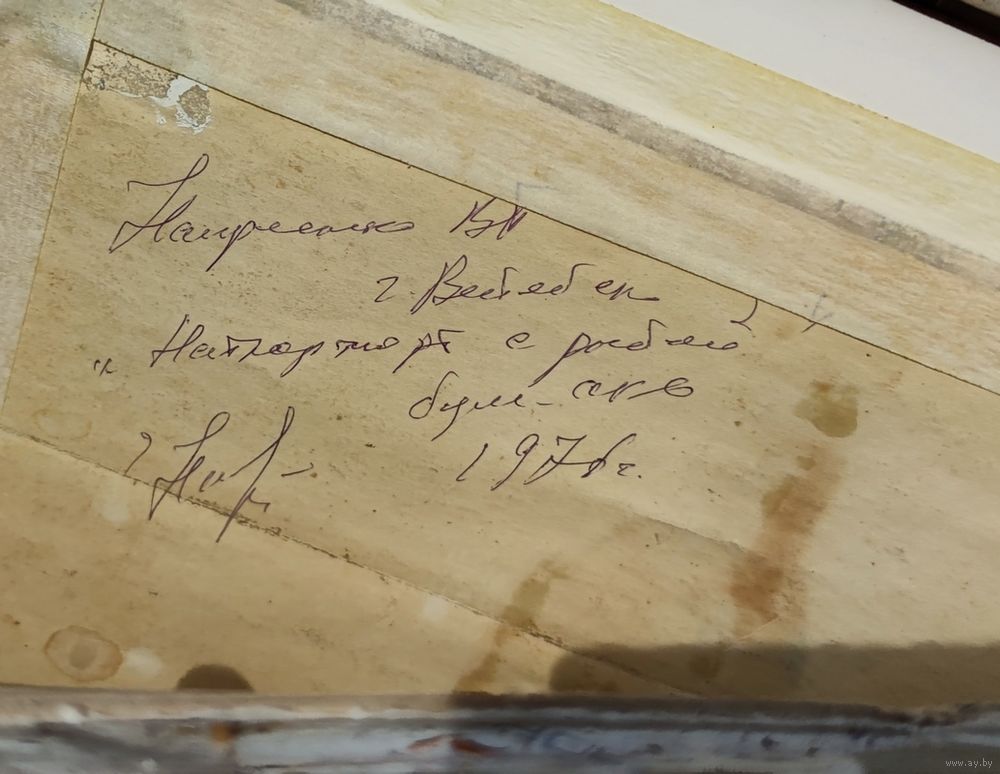 Напреенко ВП
г. Витебск
"Натюрморт с рыбой"
бум. акв
1976г.
www.ay.by